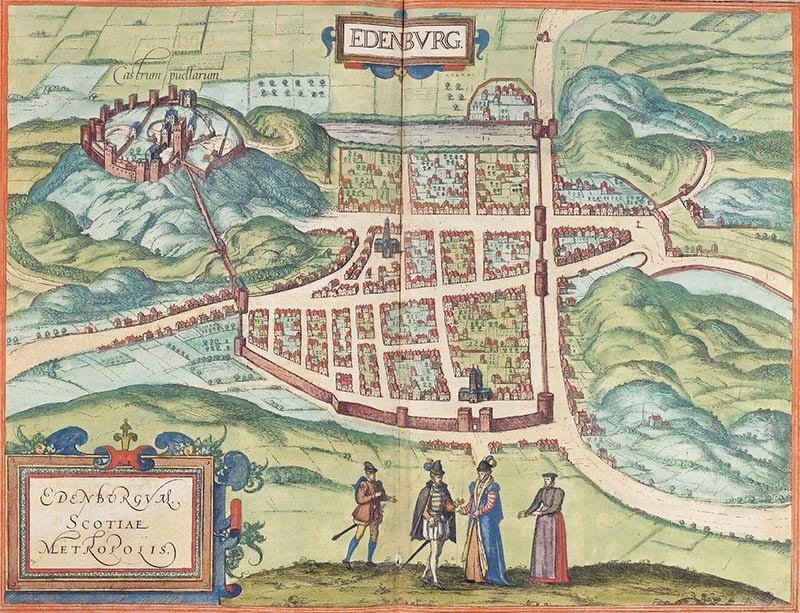 EDENBVRG.
Castrum puellarum
EDENBVRGVM,
SCOTIAE
METROPOLIS.